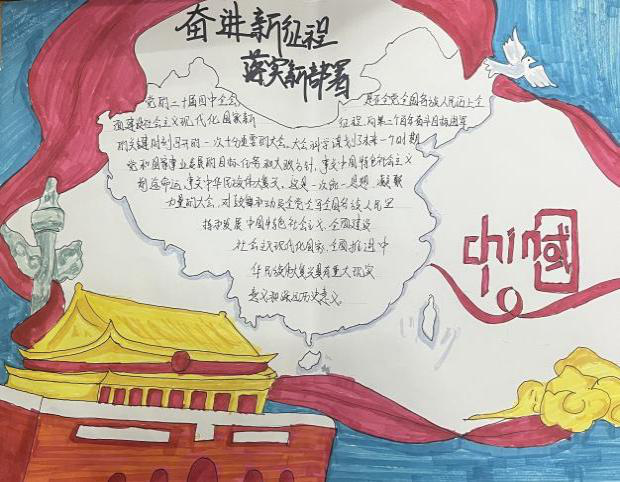 奋进新征程
落实新部署
党的二十届四中全会 是在全党全国各族人民迈上全
面建设社会主义现代化国家新 征程、向第二个百年奋斗目标进军
的关键时刻召开的一次十分重要的大会。大会科学谋划了未来一个时期
党和国家事业发展的目标任务和大政方针,事关中国特色社会主义
前途命运,事关中华民族伟大复兴。这是一次统一思想、凝聚
力量的大会,对鼓舞和动员全党全军全国各族人民坚
持和发展中国特色社会主义、全面建设
社会主义现代化国家、全面推进中
华民族伟大复兴具有重大现实
意义和深远历史意义。
china